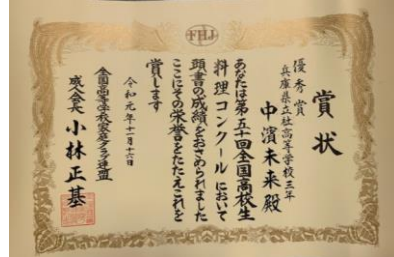 FHJ
賞状
優秀賞
兵庫県立社高等学校三年
中濱未来殿
あなたは第五十回全国高校生
料理コンクールにおいて
頭書の成績をおさめられました
ここにその栄誉をたたえこれを
賞します
令和元年十一月十六日
全国高等学校家庭クラブ連盟
成人会長 小林正基